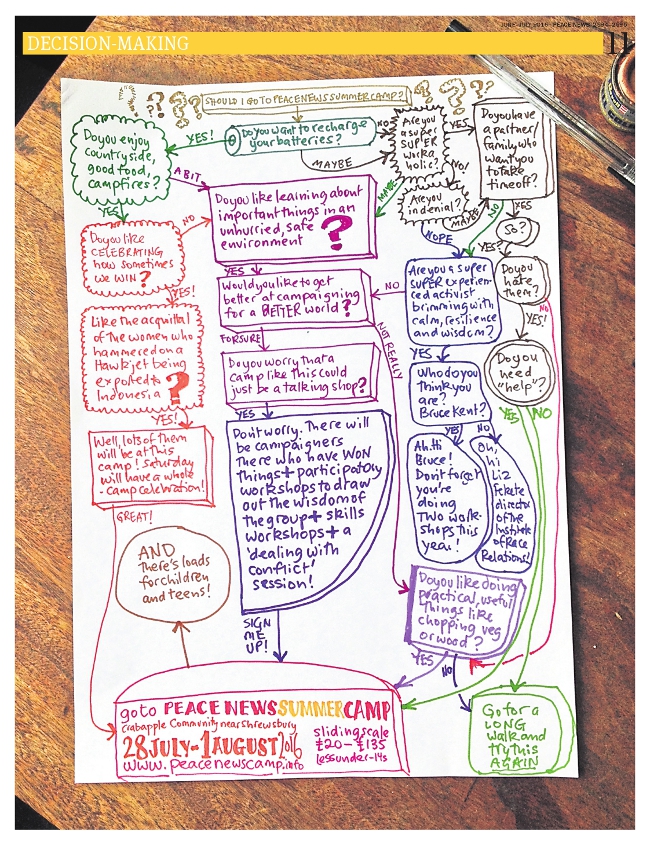 JUNE-JULY 2016 PEACE NEWS 2594-2595
DECISION-MAKING
11
SHOULD I GO TO PEACE NEWS SUMMER CAMP?
Do you want to recharge
your batteries?
YES!
MAYBE
NO
Do you enjoy
countryside,
good food,
campfires?
A BIT
YES
Are you
a super
SUPER
worka
holic?
YES
NO!
MAYBE
Are you
in denial?
MAYBE
NOPE
You have
a partner/
family who
want you
to take
time off?
YES
NO
So?
YES?
Do you
hate
them?
NO
YES!
Do you
need
"help"?
YES
NO
Do you like learning about
important things in an
unhurried, safe
environment
?
YES
Do you like
CELEBRATING
how sometimes
we WIN?
NO
YES!
Like the acquittal
of the women who
hammered on a
Hawk jet being
exported to
Indonesia
?
YES!
Well, lots of them
will be at this
camp! Saturday
will have a whole
- camp celebration!
GREAT!
Would you like to get
better at campaigning
for a BETTER world?
FOR SURE
NOT REALLY
Do you worry that a
camp like this could
just be a talking shop?
YES
Don't worry. There will
be campaigners
there who have WON
things + participatory
workshops to draw
out the wisdom of
the group + skills
workshops + a
'dealing with
conflict'
session!
SIGN
ME
UP!
Are you a super
SUPER experien-
ced activist
brimming with
calm, resilience
and wisdom?
NO
YES
Who do you
think you
are?
Bruce Kent?
YES
NO
Ah. Hi
Bruce!
Don't forget
you're
doing
TWO work-
shops this
year!
Oh,
hi
Liz
Fekete
director
of the
Institute
of Race
Relations!
AND
there's loads
for children
and teens!
Do you like doing
practical, useful
things like
chopping veg
or wood?
YES
NO
go to PEACE NEWS SUMMER CAMP
Crabapple Community near Shrewsbury
28 JULY-1 AUGUST 2016
www.peacenewscamp.info
sliding scale
£20-£135
less under-14s
Go for a
LONG
walk and
try this
AGAIN